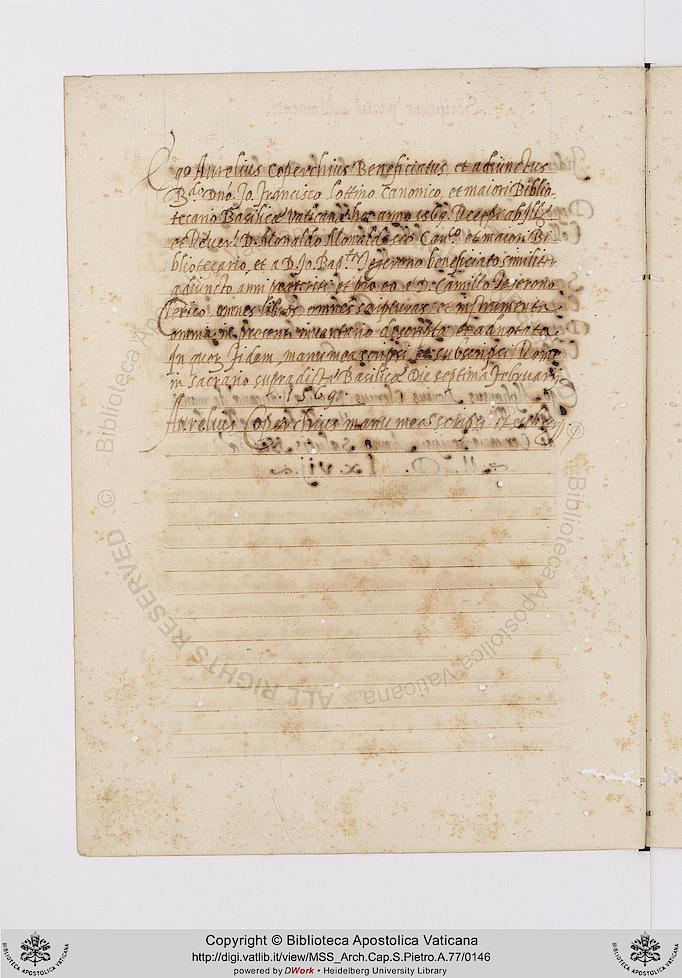 Ego Aurelius Coperchius Beneficiatus et adiunctus
R.do Dno Jo. Francisco Lottino Canonico, et maiori Biblio-
tecario Basilicæ Vaticanæ hoc anno 1569. Recepi ab Ill.
et Rever. D. Monaldo Monaldescho Can.co et maiori Bi-
bliotecario, et a D. Jo. Bap.ta beneficiato similiter
adiuncto anni præteriti et pro eo a D. Camillo
Clerico omnes libros, omnes scripturas et instrumenta
omnia in presenti inventario descripta et adnotata
In quor fidem manu mea scripsi et subscripsi Rome
in sacrario supradictæ Basilicæ Die septima Februarij
1569
Aurelius Coperchius manu mea scripsi et
Copyright © Biblioteca Apostolica Vaticana
http://digi.vatlib.it/view/MSS_Arch.Cap.S.Pietro.A.77/0146
powered by DWork • Heidelberg University Library
© Biblioteca Apostolica Vaticana
ALL RIGHTS RESERVED
BIBLIOTECA APOSTOLICA VATICANA